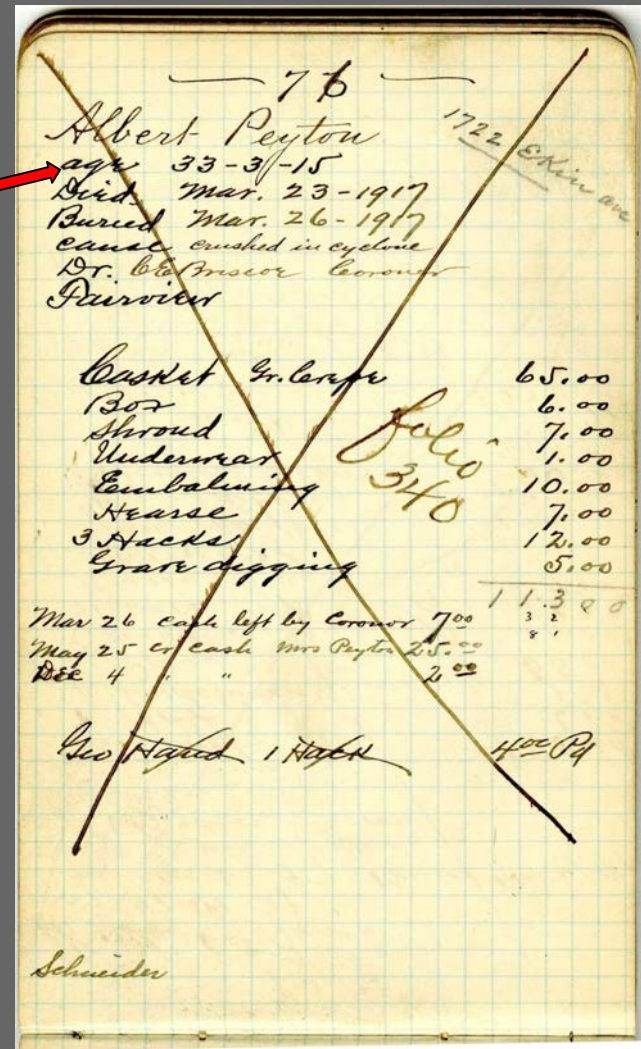 — 76 —
Albert Peyton
1722 Ekin ave
age 33-3-15
Died. Mar. 23-1917
Buried Mar. 26-1917
cause crushed in cyclone
Dr. CE Briscoe Coroner
Fairview
Casket Gr. Crepe 65.00
Box 6.00
Shroud 7.00
Underwear 1.00
Embalming 10.00
Hearse 7.00
3 Hacks 12.00
Grave digging 5.00
folio
340
113 00
Mar 26 cash left by Coronor 7 00 32
May 25 cr cash Mrs Peyton 25.00 81
Dec 4 " " 2 00
Geo Hand 1 Hack 4 00 Pd
Schneider